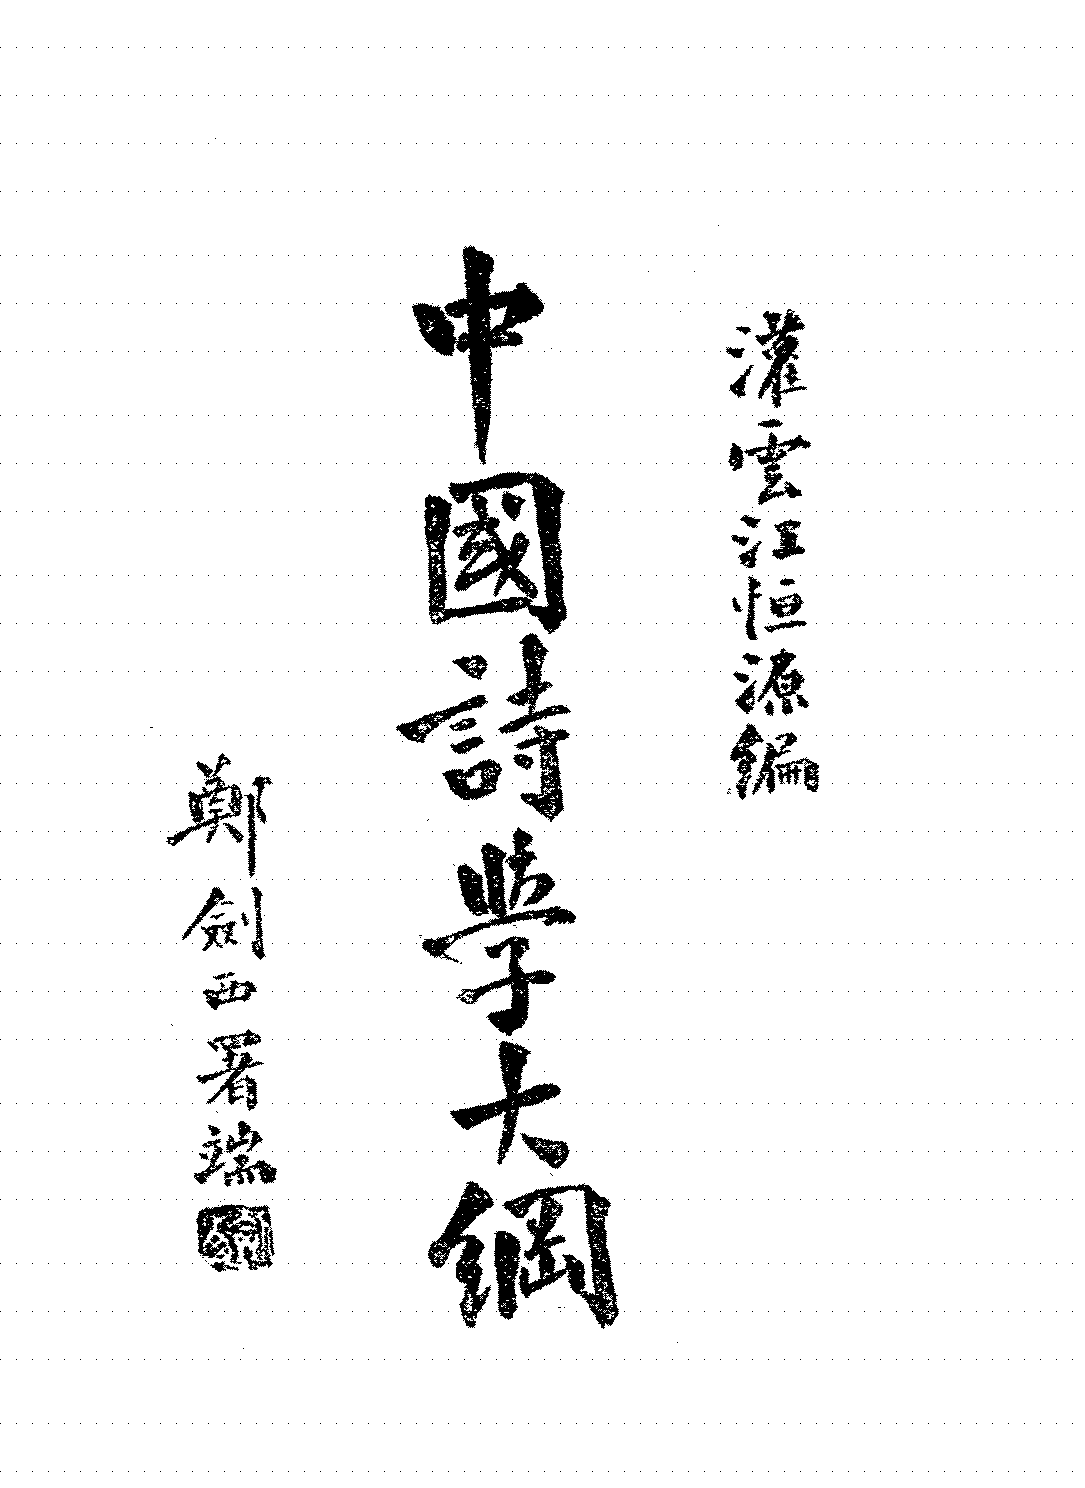 灌雲江恒源編
中國詩學大綱
鄭劍西署端